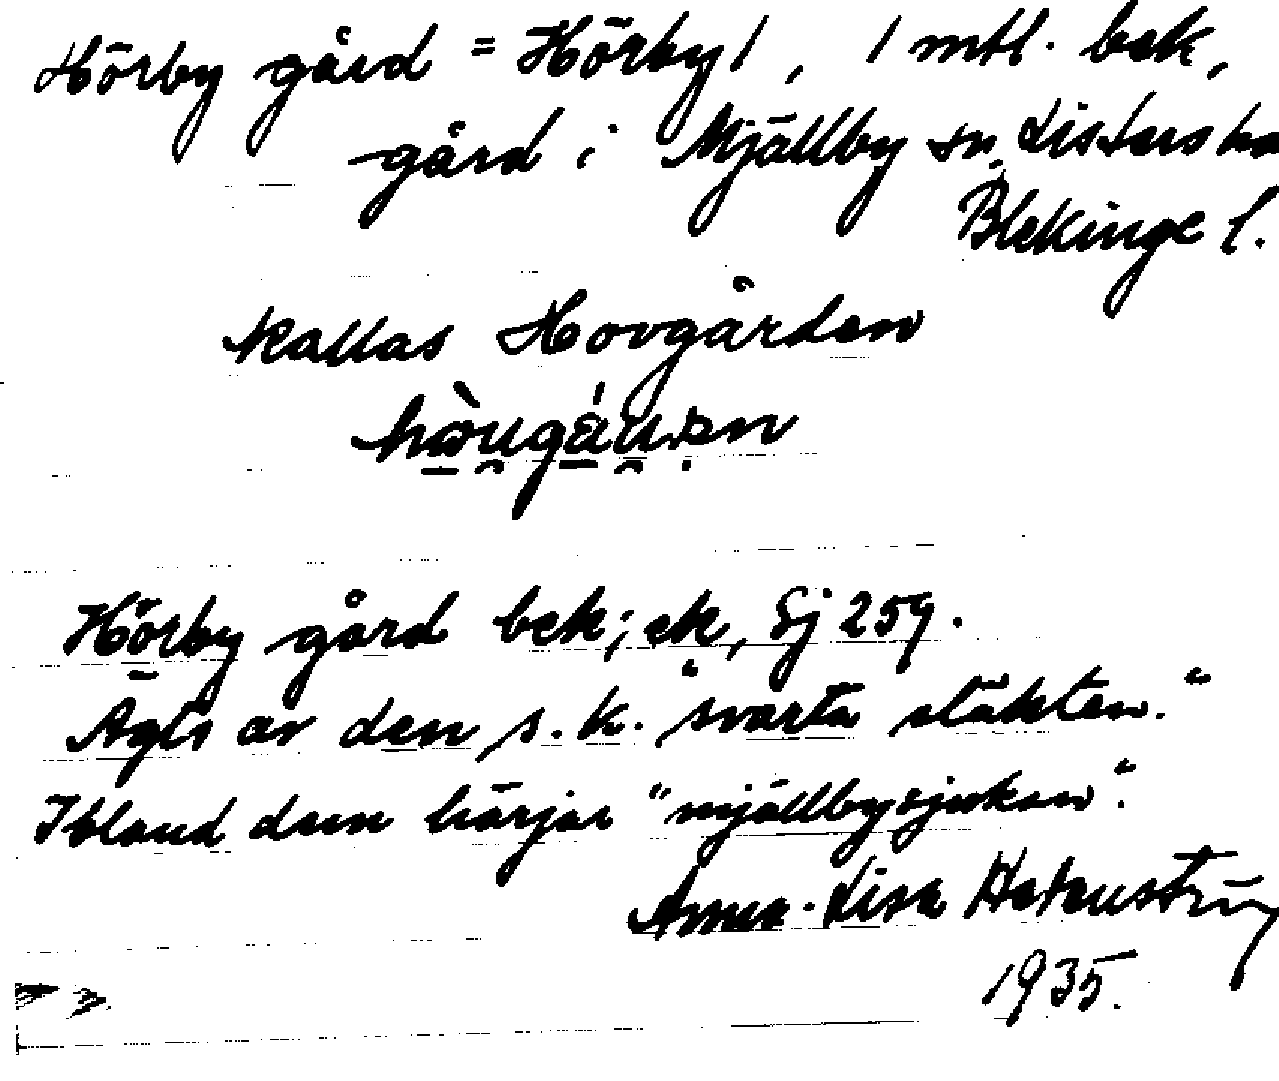 Hörby gård = Hörby 1, 1 mtl. bek,
gård i Mjällby sn, Listers hd
Blekinge l.
kallas Hovgården
Hörby gård bek; ek, Sj 259.
Ägts av den s.k. "svarta släkten."
Ibland dem härjar "mjällbysjukan".
Anna-Lisa
1935.